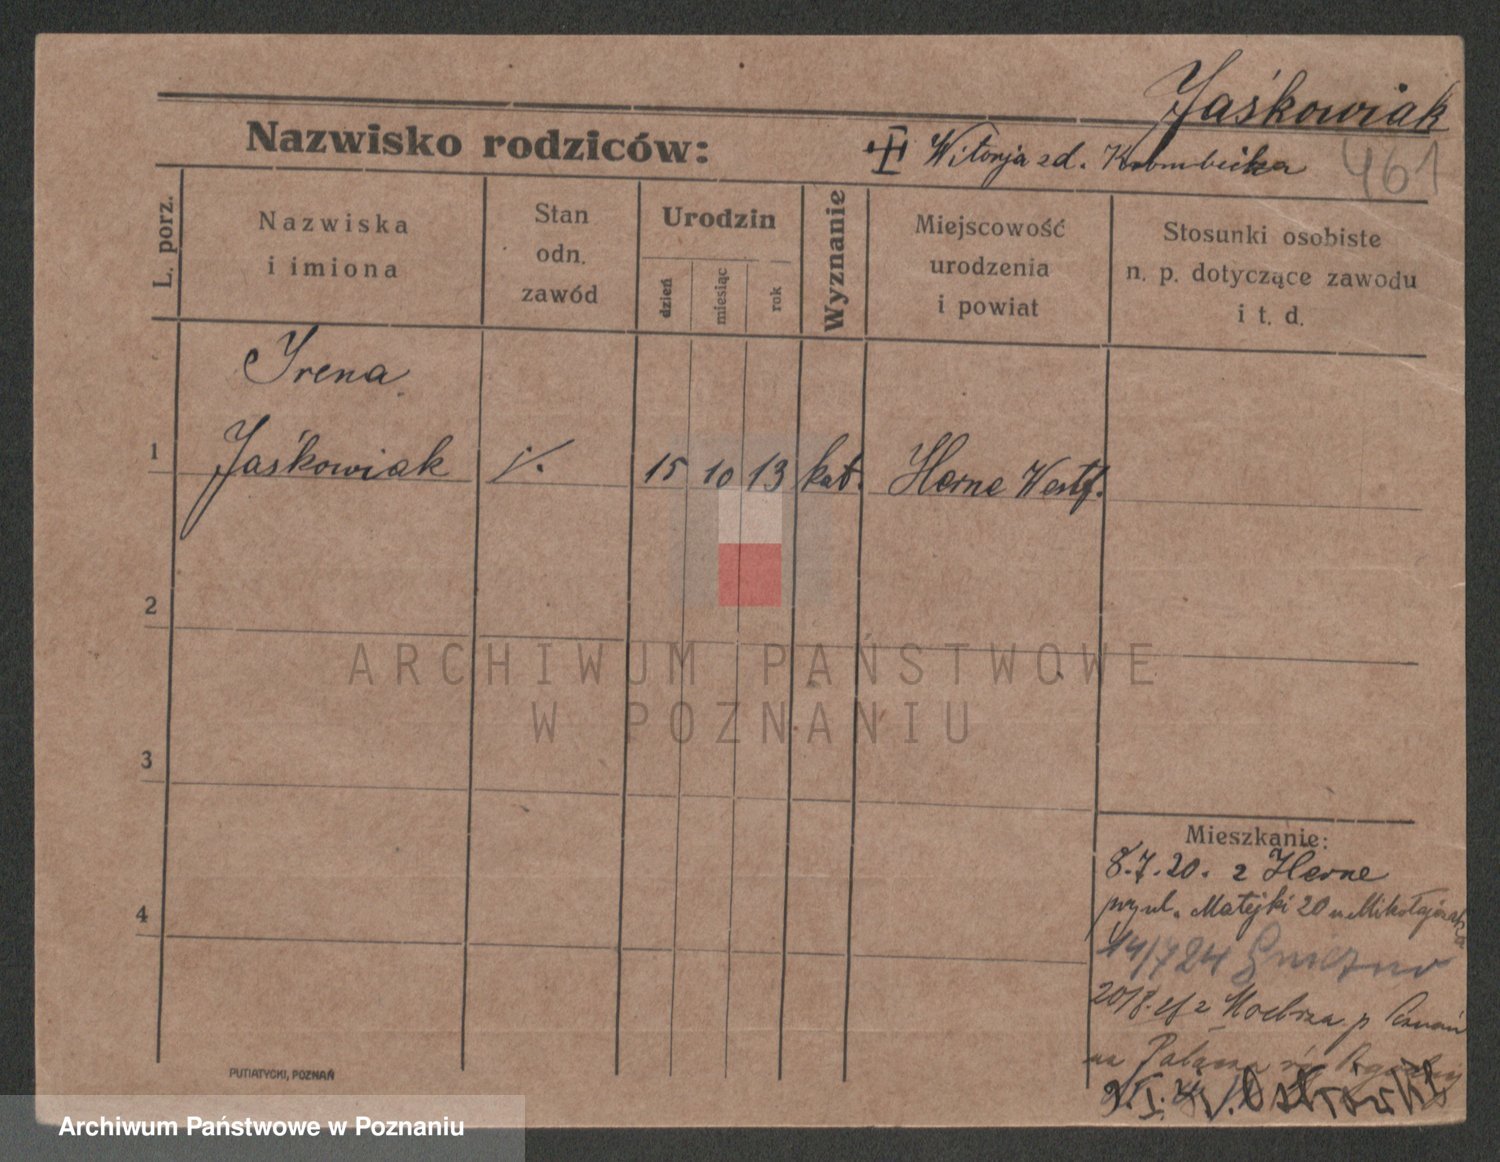 Jaśkowiak
Nazwisko rodziców: Witorja zd. Krombicka
461
L. porz.
Nazwiska
i imiona
Stan
odn.
zawód
Urodzin
dzień
miesiąc
rok
Wyznanie
Miejscowość
urodzenia
i powiat
Stosunki osobiste
n. p. dotyczące zawodu
i t. d.
Irena
1 Jaśkowiak j/. 15 10 13 kat. Herne Westf.
2
ARCHIWUM PAŃSTWOWE
W POZNANIU
3
4
Mieszkanie:
8.7.20. z Herne
przy ul. Matejki 20 u Mikołajczaka
14/7 24 Gniezno
z p Poznań
na
PUTIATYCKI, POZNAŃ
Archiwum Państwowe w Poznaniu